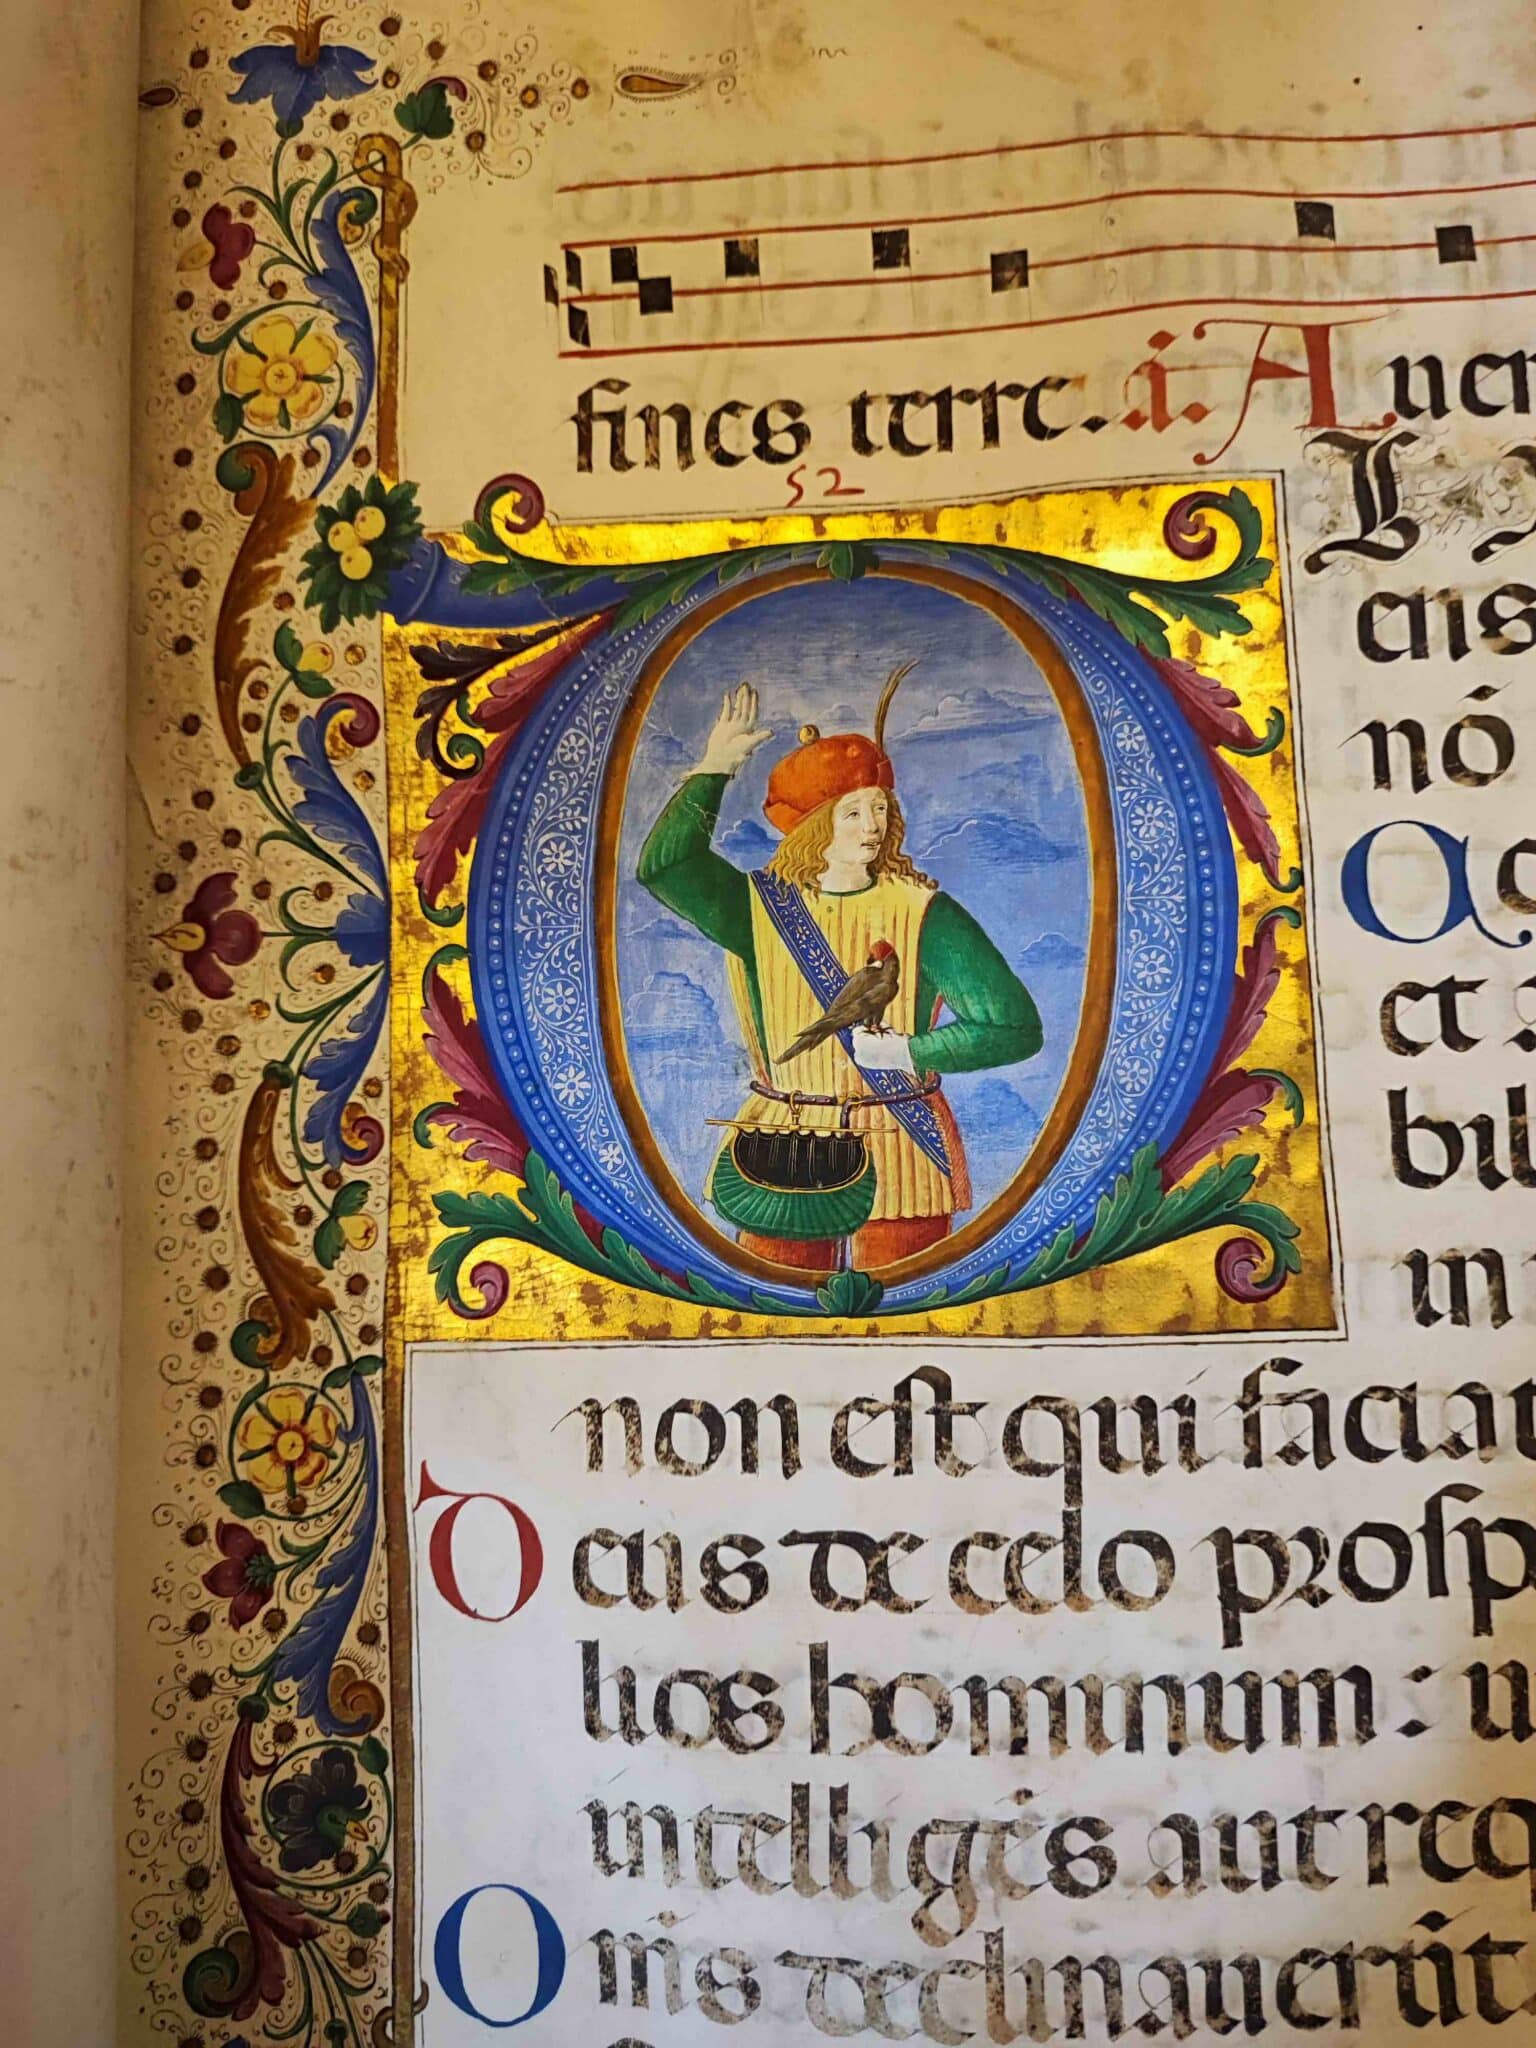 fines terre. á. Auer
52
D
eis
nō
Ac
et
bil
in
non est qui faciat
Deus de celo prosp
lios hominum: u
intelligēs aut req
Om̄s declinauerūt